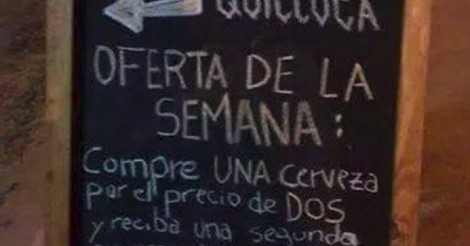 OFERTA DE LA
SEMANA:
Compre UNA cerveza
por el precio de DOS
y reciba una segunda